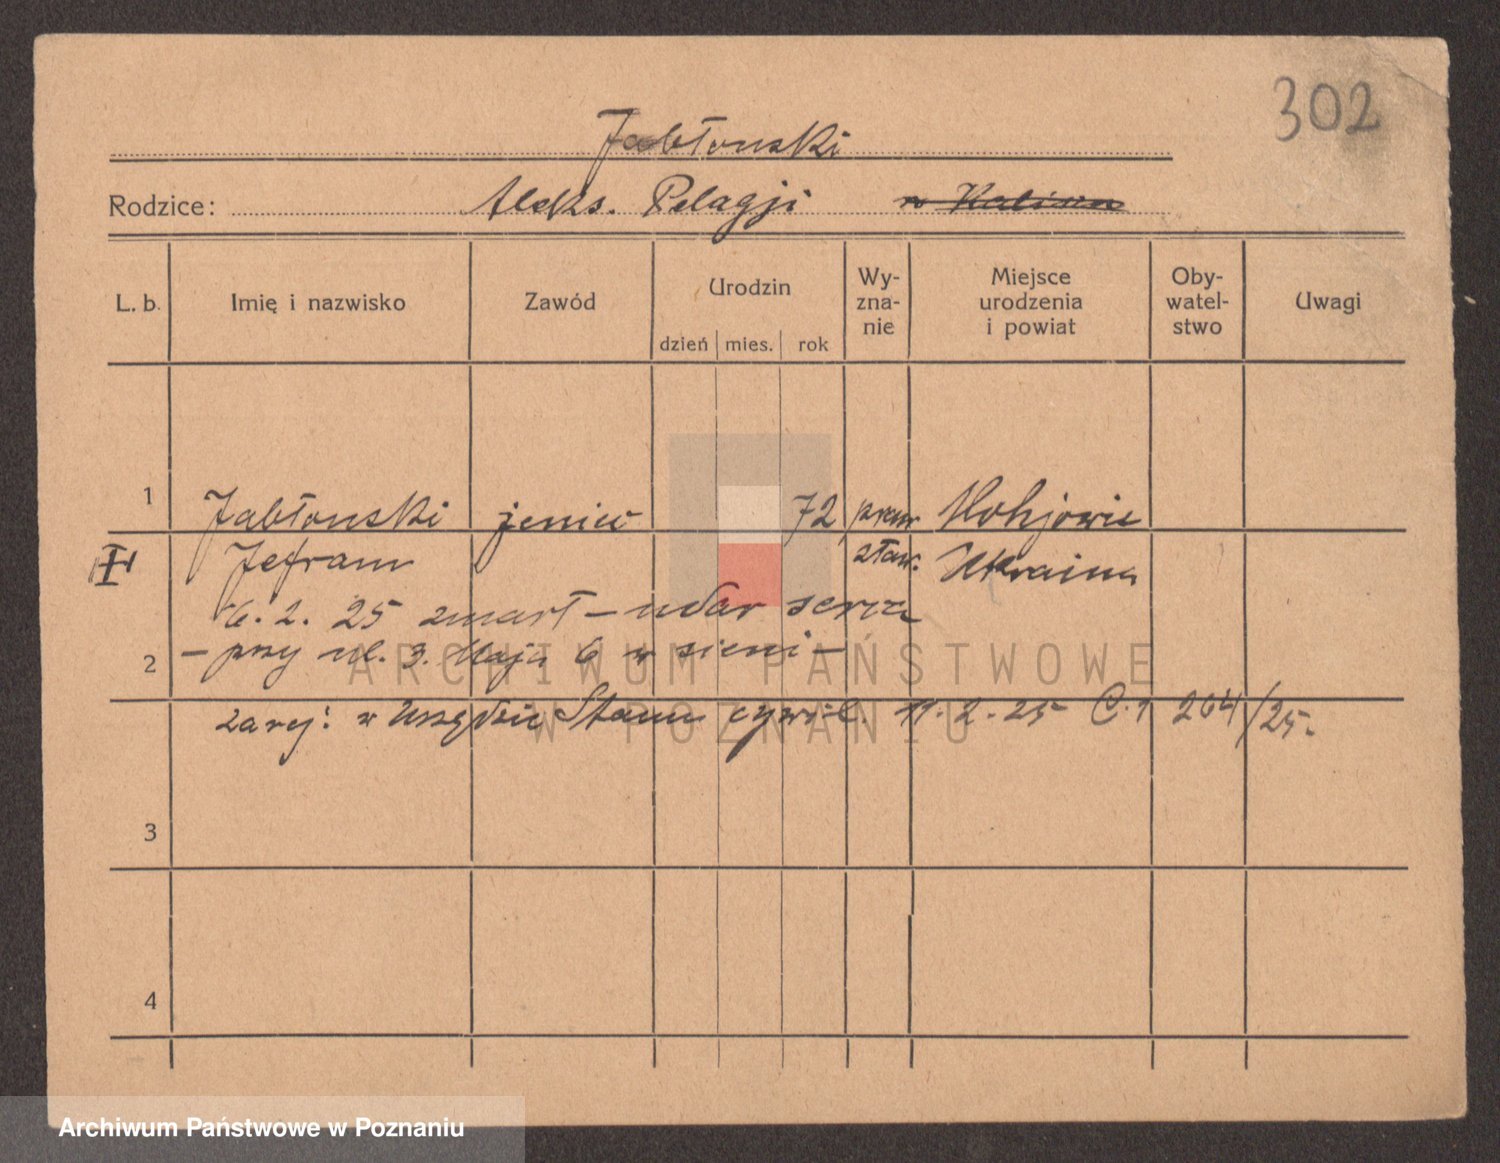 302
Jabłonski
Rodzice: Aleks. Pelagji
L. b. Imię i nazwisko Zawód Urodzin dzień mies. rok Wy-zna-nie Miejsce urodzenia i powiat Oby-watel-stwo Uwagi
1 Jabłonski jeniec 72 praw
Jefram zław. Ukraina
6. 2. 25 zmarł – udar serca
2 – przy ul. 3. Maja 6 w sieni –
zarej: w Urzędzie Stanu cywil. 11. 2. 25 C.1 264/25.
3
4
ARCHIWUM PAŃSTWOWE
W POZNANIU
Archiwum Państwowe w Poznaniu